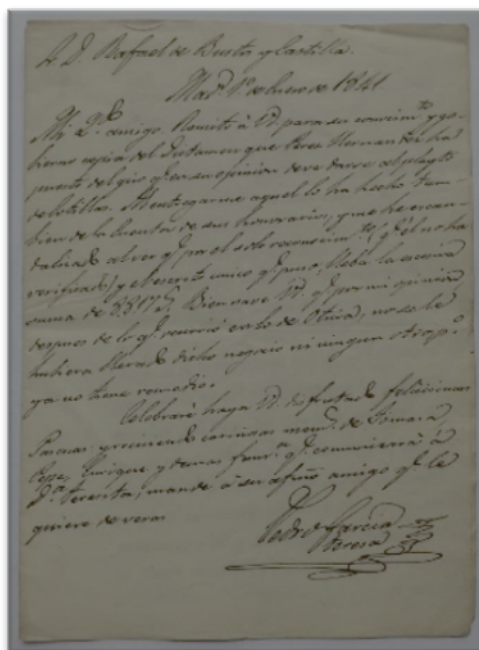 A. D. Rafael de Bustos y Castilla.
Mad. 1º de Enero de 1841
Mi Qdo. amigo. Remito á Vd. para su conocimto. y go-
bierno copia del Dictamen que Perez Hernandez ha
puesto del giro qe. en su opinion deve darse al pleyto
de Cotillas. Al entregarme aquel lo ha hecho tam-
bien de la cuenta de sus honorarios, y me he escan-
dalizado al ver qe. por el solo reconocimto. (qe. él no ha
verificado) y el escrito unico qe. puso, lleba la excesiva
suma de
Bien save Vd. qe. por mi opinion
despues de lo qe. ocurrió en lo de Otiña, no se le
hubiera llevado dicho negocio ni ningun otro, po.
ya no tiene remedio.
Celebraré haya Vd. disfrutado felicisimas
Pascuas: y reciviendo cariñosas mems. de Tomasa,
Pepa, Enrique y demas fama. qe. comunicará á
Da. Teresita, mande á su afmo. amigo qe. le
quiere de veras
Pedro Garcia